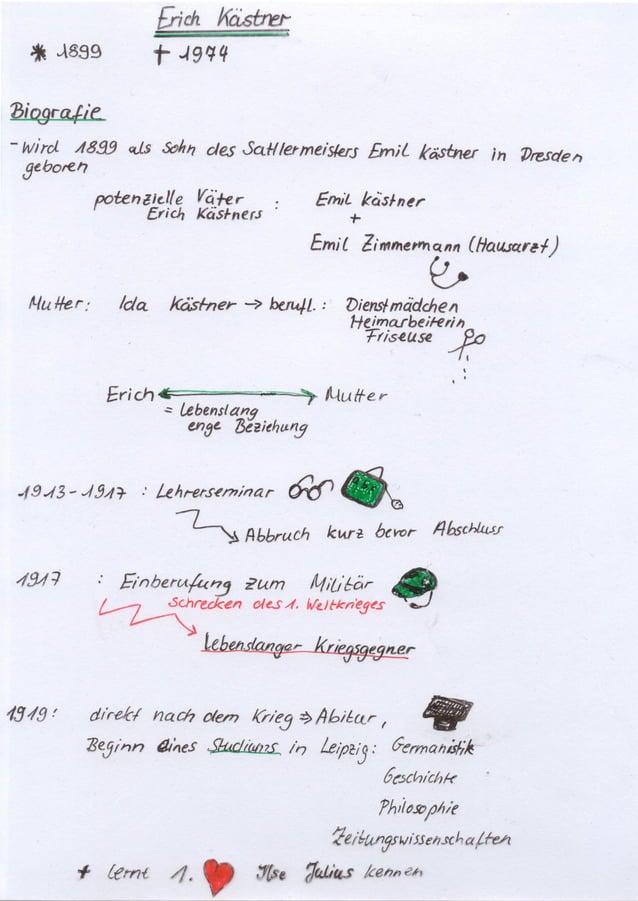 Erich Kästner
* 1899 † 1974
Biografie
- wird 1899 als Sohn des Sattlermeisters Emil Kästner in Dresden
geboren
potenzielle Väter : Emil Kästner
Erich Kästners
+
Emil Zimmermann (Hausarzt)
Mutter: Ida Kästner → berufl.: Dienstmädchen
Heimarbeiterin
Friseuse
Erich ↔ Mutter
= Lebenslang
enge Beziehung
1913-1917 : Lehrerseminar
Abbruch kurz bevor Abschluss
1917 : Einberufung zum Militär
Schrecken des 1. Weltkrieges
Lebenslanger Kriegsgegner
1919: direkt nach dem Krieg ⇒ Abitur,
Beginn eines Studiums in Leipzig: Germanistik
Geschichte
Philosophie
Zeitungswissenschaften
+ lernt 1. ♥ Ilse Julius kennen